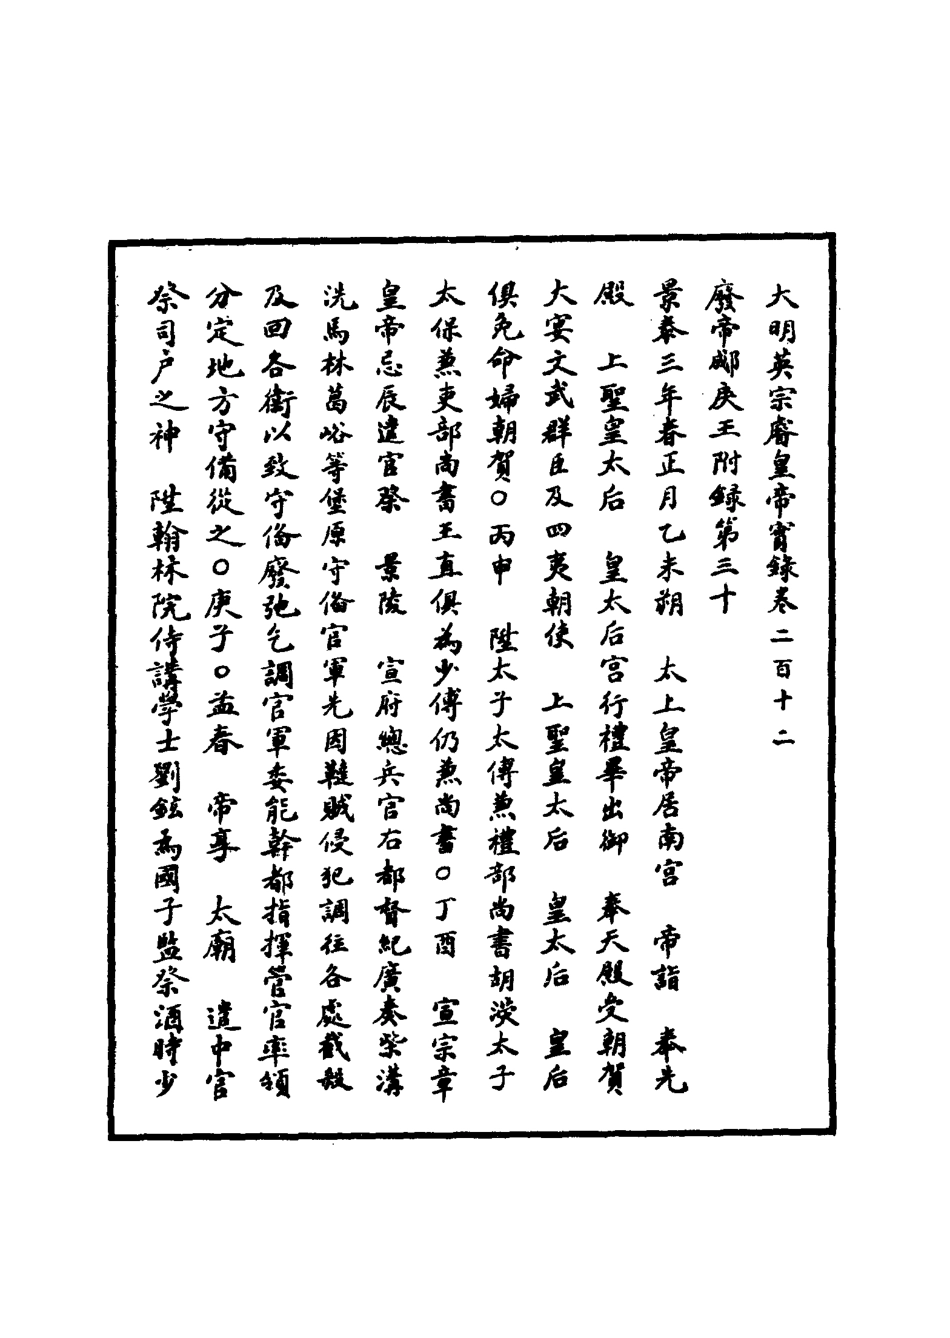 大明英宗睿皇帝實錄卷二百十二
廢帝郕戾王附錄第三十
景泰三年春正月乙未朔　太上皇帝居南宮　帝詣　奉先
殿　上聖皇太后　皇太后宮行禮畢出御　奉天殿受朝賀
大宴文武群臣及四夷朝使　上聖皇太后　皇太后　皇后
俱免命婦朝賀○丙申　陞太子太傅兼禮部尚書胡濙太子
太保兼吏部尚書王直俱為少傅仍兼尚書○丁酉　宣宗章
皇帝忌辰遣官祭　景陵　宣府總兵官右都督紀廣奏柴溝
洗馬林葛峪等堡原守俻官軍先因韃賊侵犯調往各處截殺
及回各衛以致守俻廢弛乞調官軍委能幹都指揮管官率領
分定地方守備從之○庚子○孟春　帝享　太廟　遣中官
祭司户之神　陞翰林院侍講學士劉鉉為國子監祭酒時少